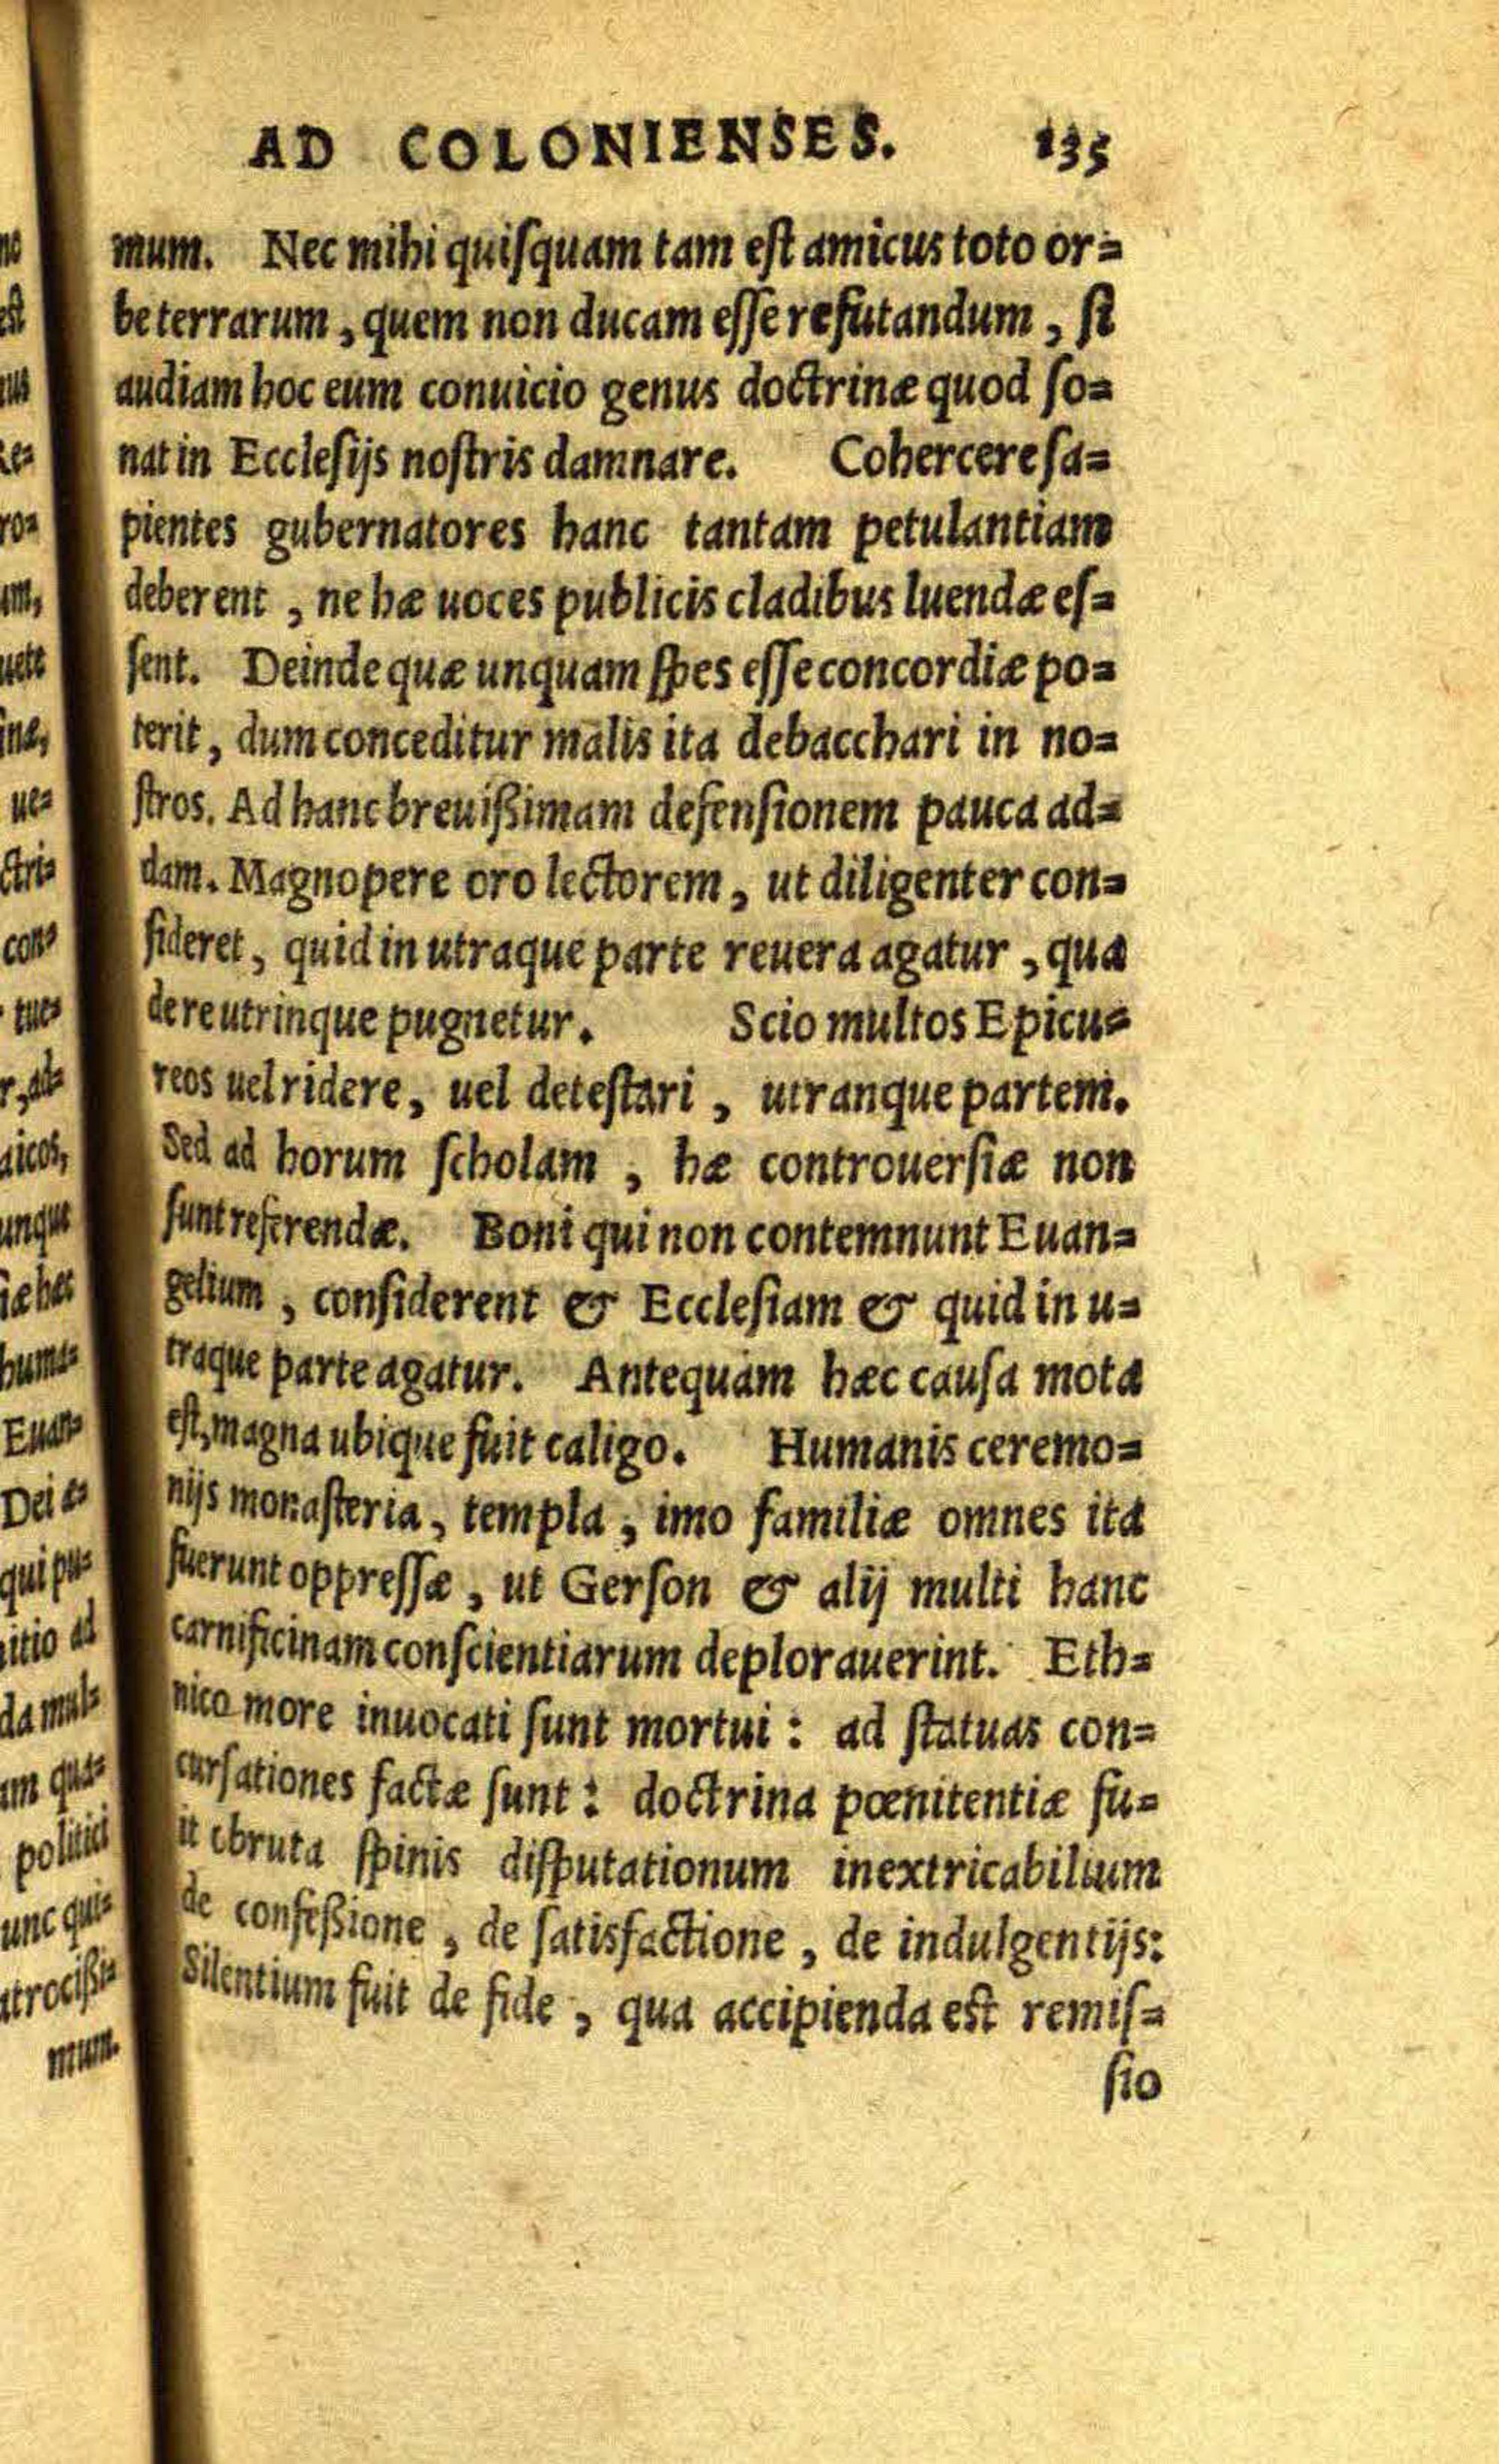 AD COLONIENSES. 135
mum. Nec mihi quiſquam tam eſt amicus toto or=
be terrarum, quem non ducam eſſe refutandum, ſi
audiam hoc eum conuicio genus doctrinæ quod ſo=
nat in Eccleſijs noſtris damnare. Cohercere ſa=
pientes gubernatores hanc tantam petulantiam
deberent, ne hæ uoces publicis cladibus luendæ eſ=
ſent. Deinde quæ unquam ſpes eſſe concordiæ po=
terit, dum conceditur malis ita debacchari in no=
ſtros. Ad hanc breuißimam defenſionem pauca ad=
dam. Magnopere oro lectorem, ut diligenter con=
ſideret, quid in utraque parte reuera agatur, qua
de re utrinque pugnetur. Scio multos Epicu=
reos uel ridere, uel deteſtari, utranque partem.
Sed ad horum ſcholam, hæ controuerſiæ non
ſunt referendæ. Boni qui non contemnunt Euan=
gelium, conſiderent & Eccleſiam & quid in u=
traque parte agatur. Antequam hæc cauſa mota
eſt, magna ubique fuit caligo. Humanis ceremo=
nijs monaſteria, templa, imo familiæ omnes ita
fuerunt oppreſſæ, ut Gerſon & alij multi hanc
carnificinam conſcientiarum deplorauerint. Eth=
nico more inuocati ſunt mortui: ad ſtatuas con=
curſationes factæ ſunt: doctrina pœnitentiæ fu=
it obruta ſpinis diſputationum inextricabilium
de confeßione, de ſatisfactione, de indulgentijs:
Silentium fuit de fide, qua accipienda est remiſ=
ſio